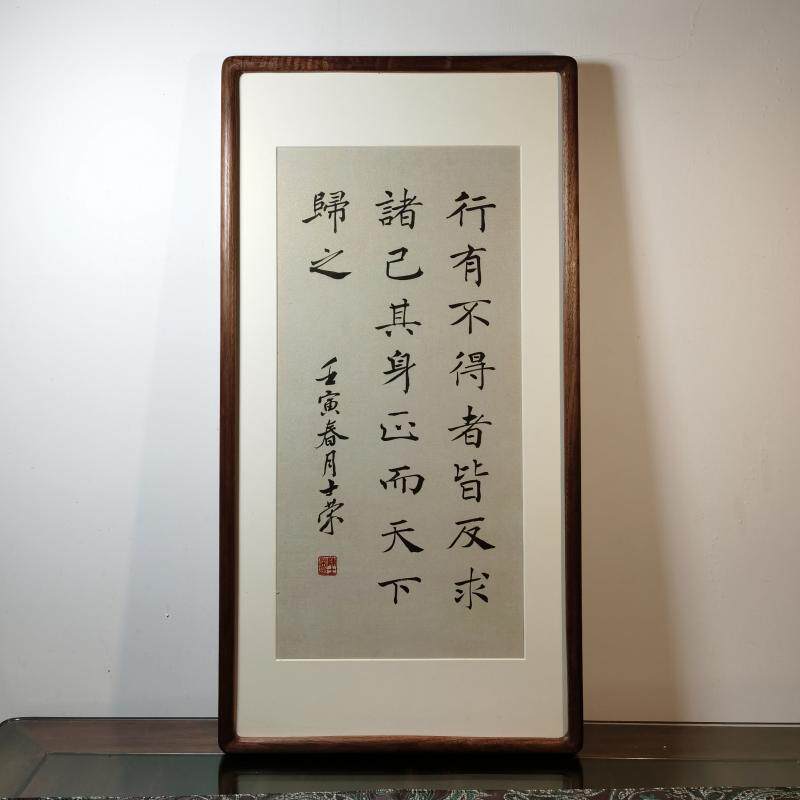 行有不得者皆反求
諸己其身正而天下
歸之
壬寅春月士荣